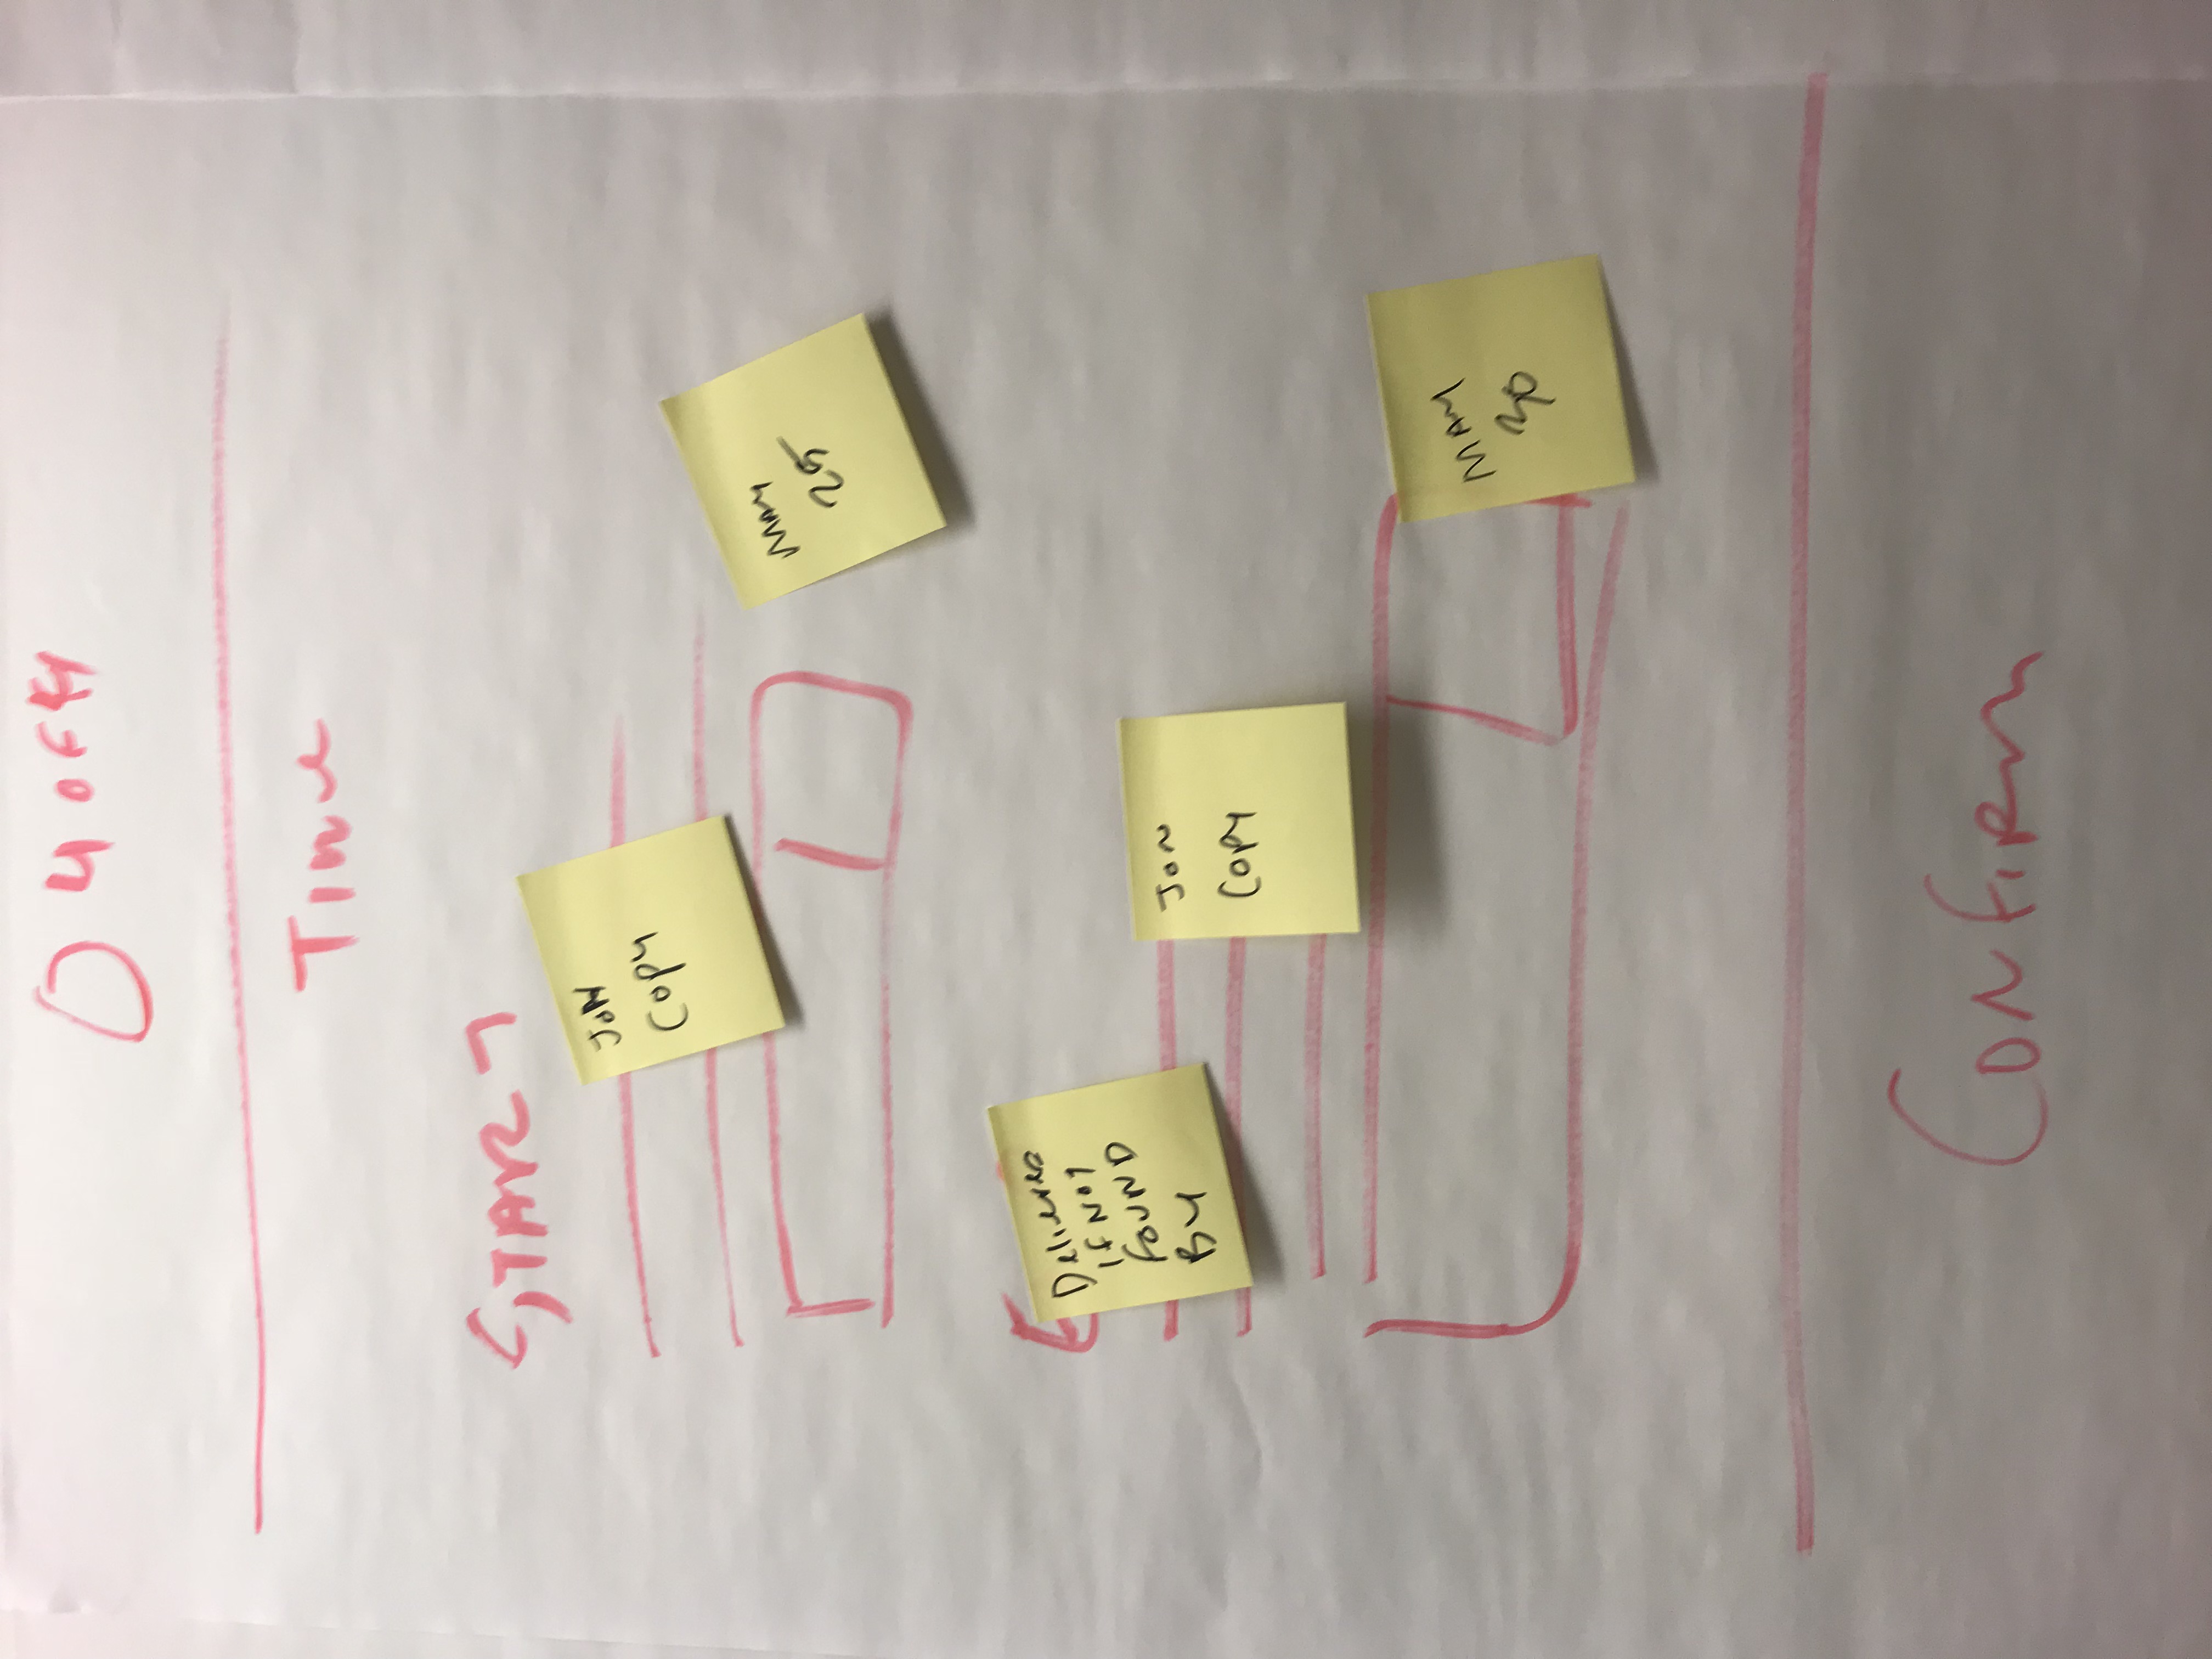 4 of 4
Time
START
Jon
Copy
May
25
E
Deliver
if not
found
By
Jon
Copy
May
30
Confirm